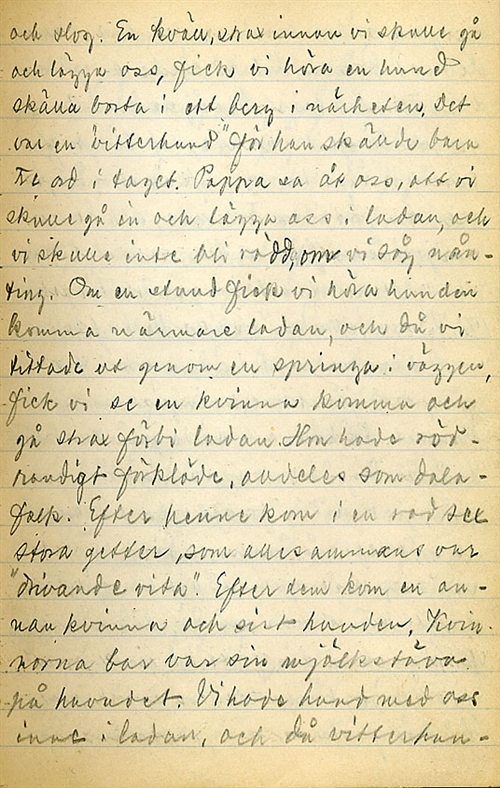 och slog. En kväll, strax innan vi skulle gå
och lägga oss, fick vi höra en hund
skälla borta i ett berg i närheten. Det
var en "vitterhund" för han skällde bara
tre ord i taget. Pappa sa åt oss, att vi
skulle gå in och lägga oss i ladan, och
vi skulle inte bli rädd, om vi såg nån-
ting. Om en stund fick vi höra hunden
komma närmare ladan, och då vi
tittade ut genom en springa i väggen,
fick vi se en kvinna komma och
gå strax förbi ladan. Hon hade röd-
randigt förkläde, alldeles som dala-
folk. Efter henne kom i en rad sex
stora getter, som allesammans var
"drivande vita". Efter dem kom en an-
nan kvinna och sist hunden. Kvin-
norna bar var sin mjölkstäva
på huvudet. Vi hade hund med oss
inne i ladan, och då vitterhun-